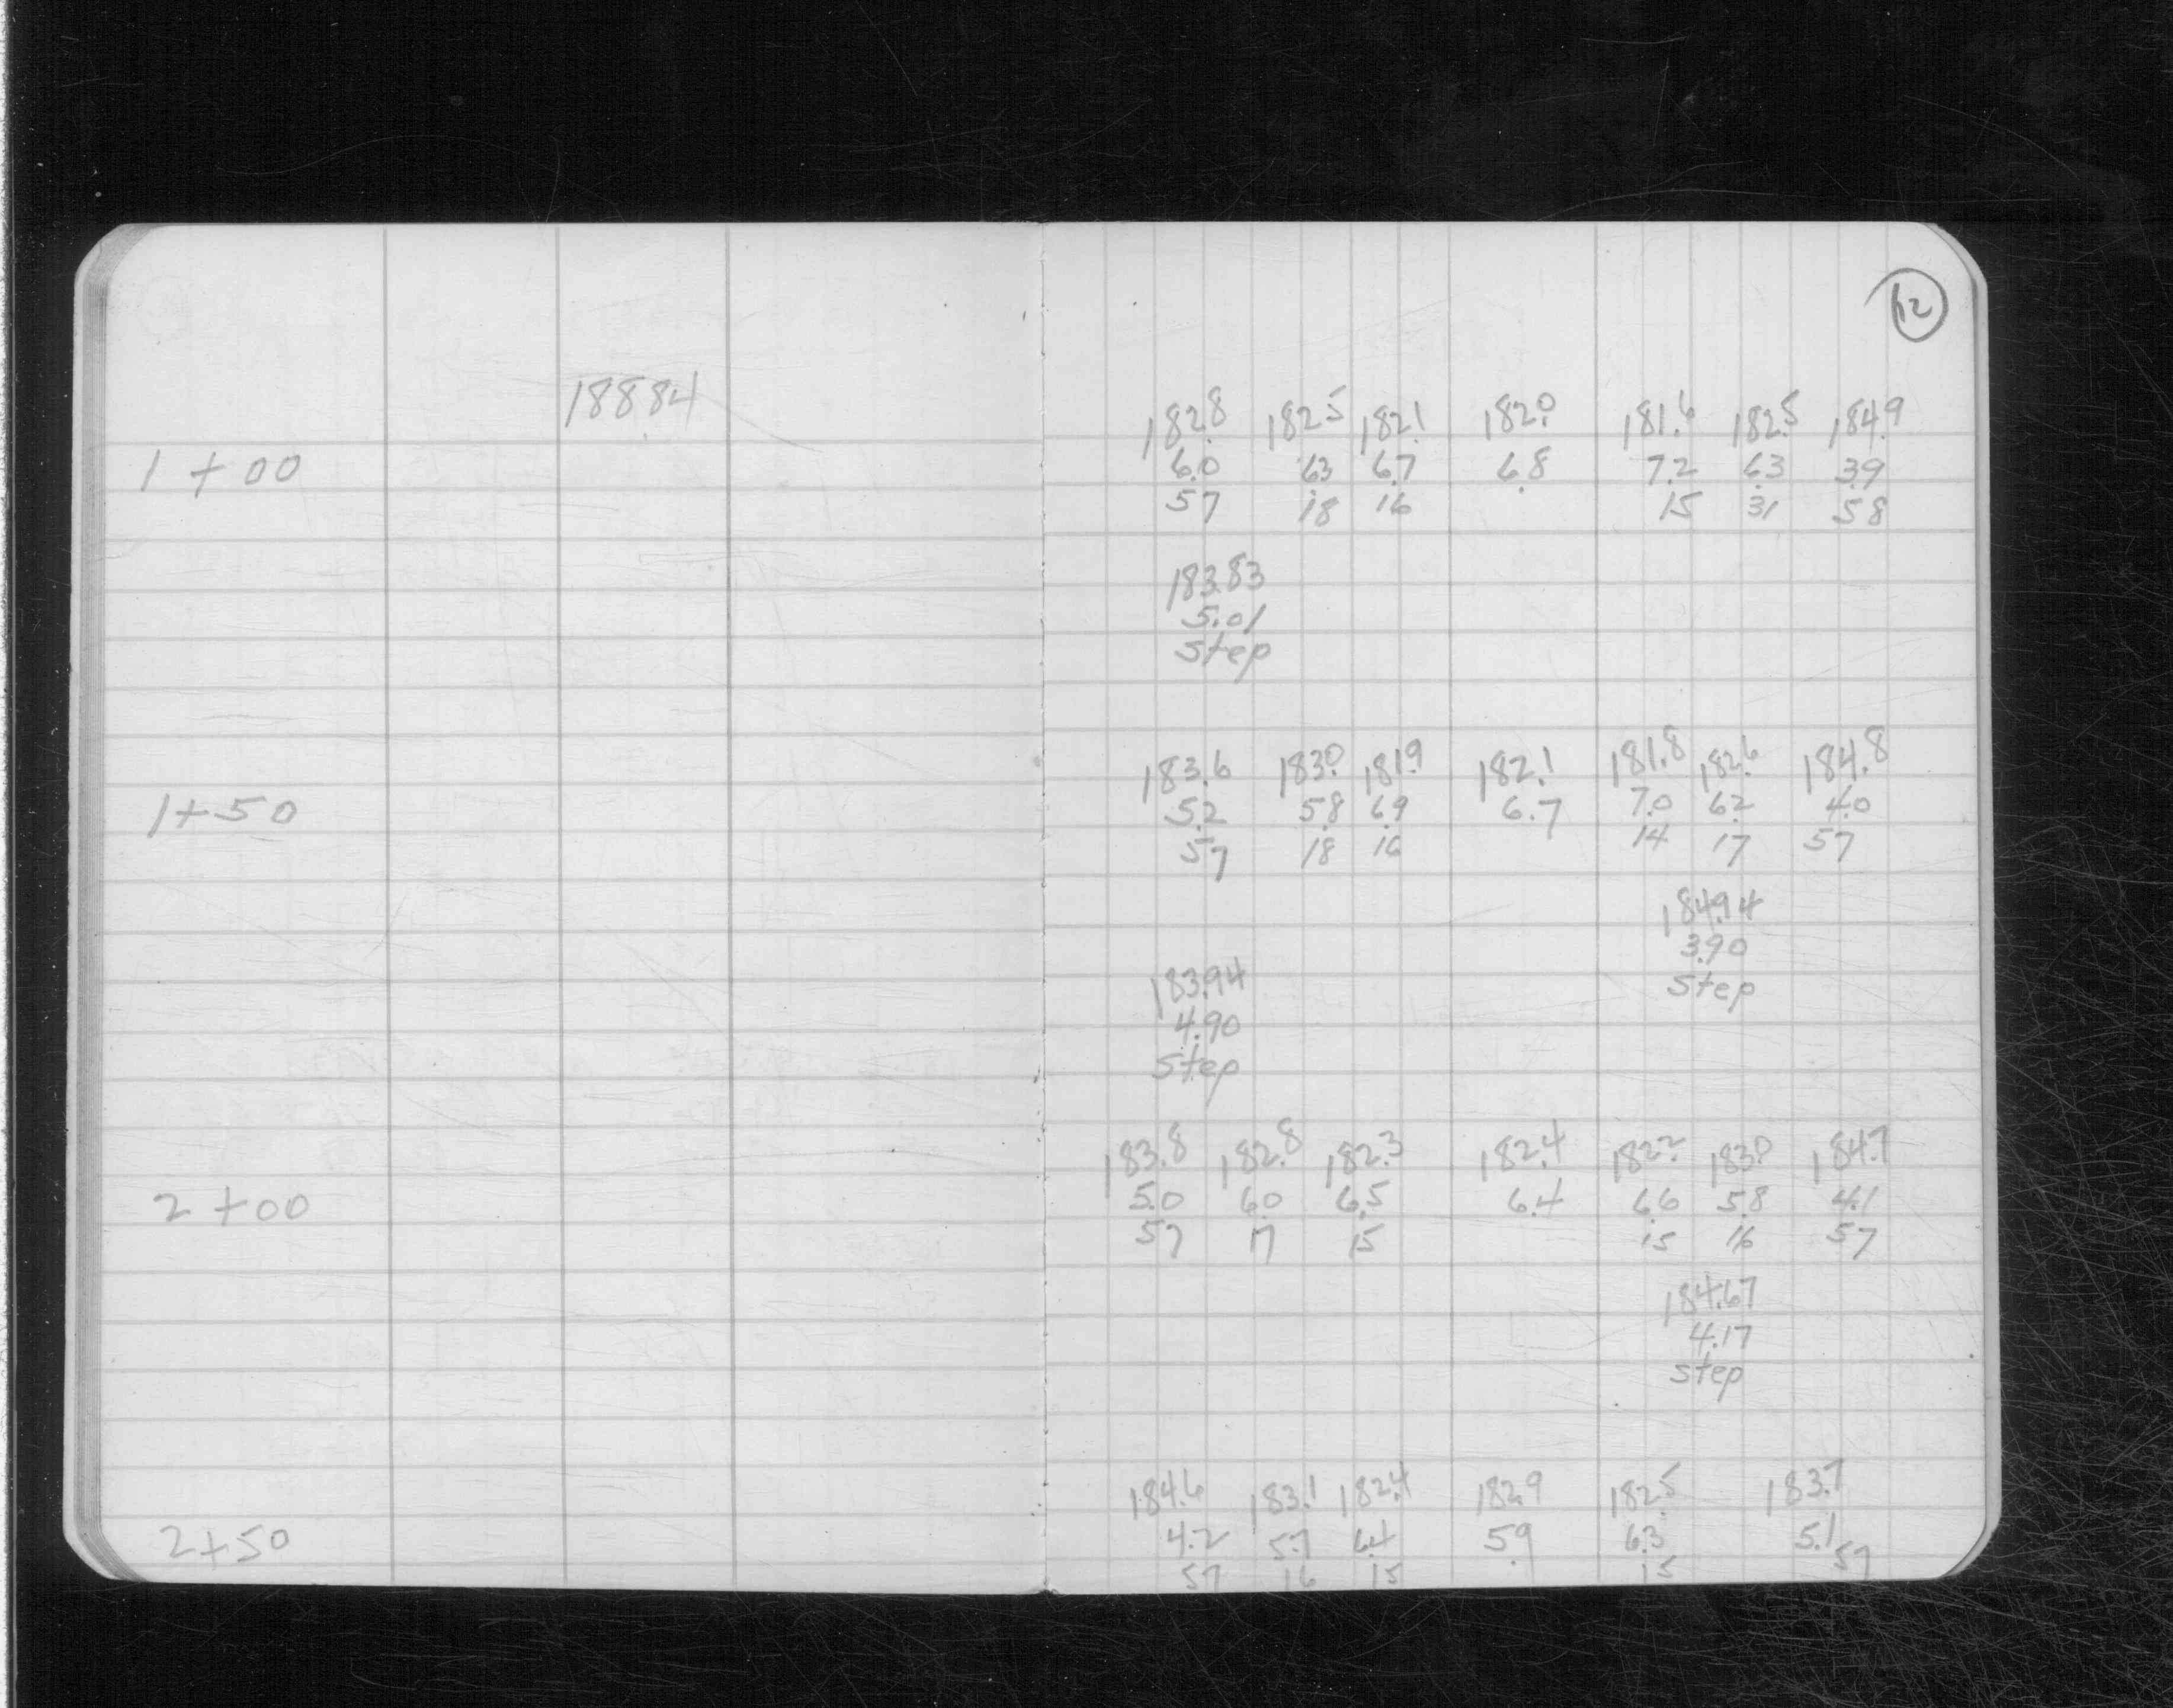 12
188.84
182.8 182.5 182.1 182.0 181.6 182.5 184.9
1+00 6.0 6.3 6.7 6.8 7.2 6.3 3.9
57 18 16 15 31 58
183.83
5.01
Step
183.6 183.0 181.9 182.1 181.8 182.6 184.8
1+50 5.2 5.8 6.9 6.7 7.0 6.2 4.0
57 18 16 14 17 57
184.94
3.90
Step
183.94
4.90
Step
183.8 182.8 182.3 182.4 182.2 183.0 184.7
2+00 5.0 6.0 6.5 6.4 6.6 5.8 4.1
57 17 15 15 16 57
184.67
4.17
Step
184.6 183.1 182.4 182.9 182.5 183.7
2+50 4.2 5.7 6.4 5.9 6.3 5.1
57 16 15 15 57